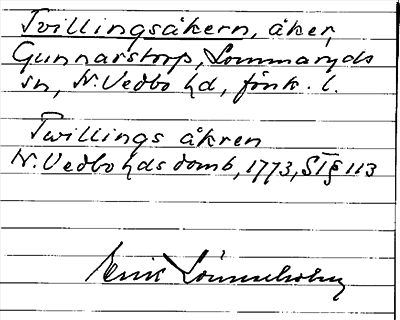 Tvillingsåkern, åker,
Gunnarstorp, Lommaryds
sn, N. Vedbo hd, Jönk. l.
Twillings åkren
N. Vedbo hds domb, 1773, STg 113
Erik Lönnerholm